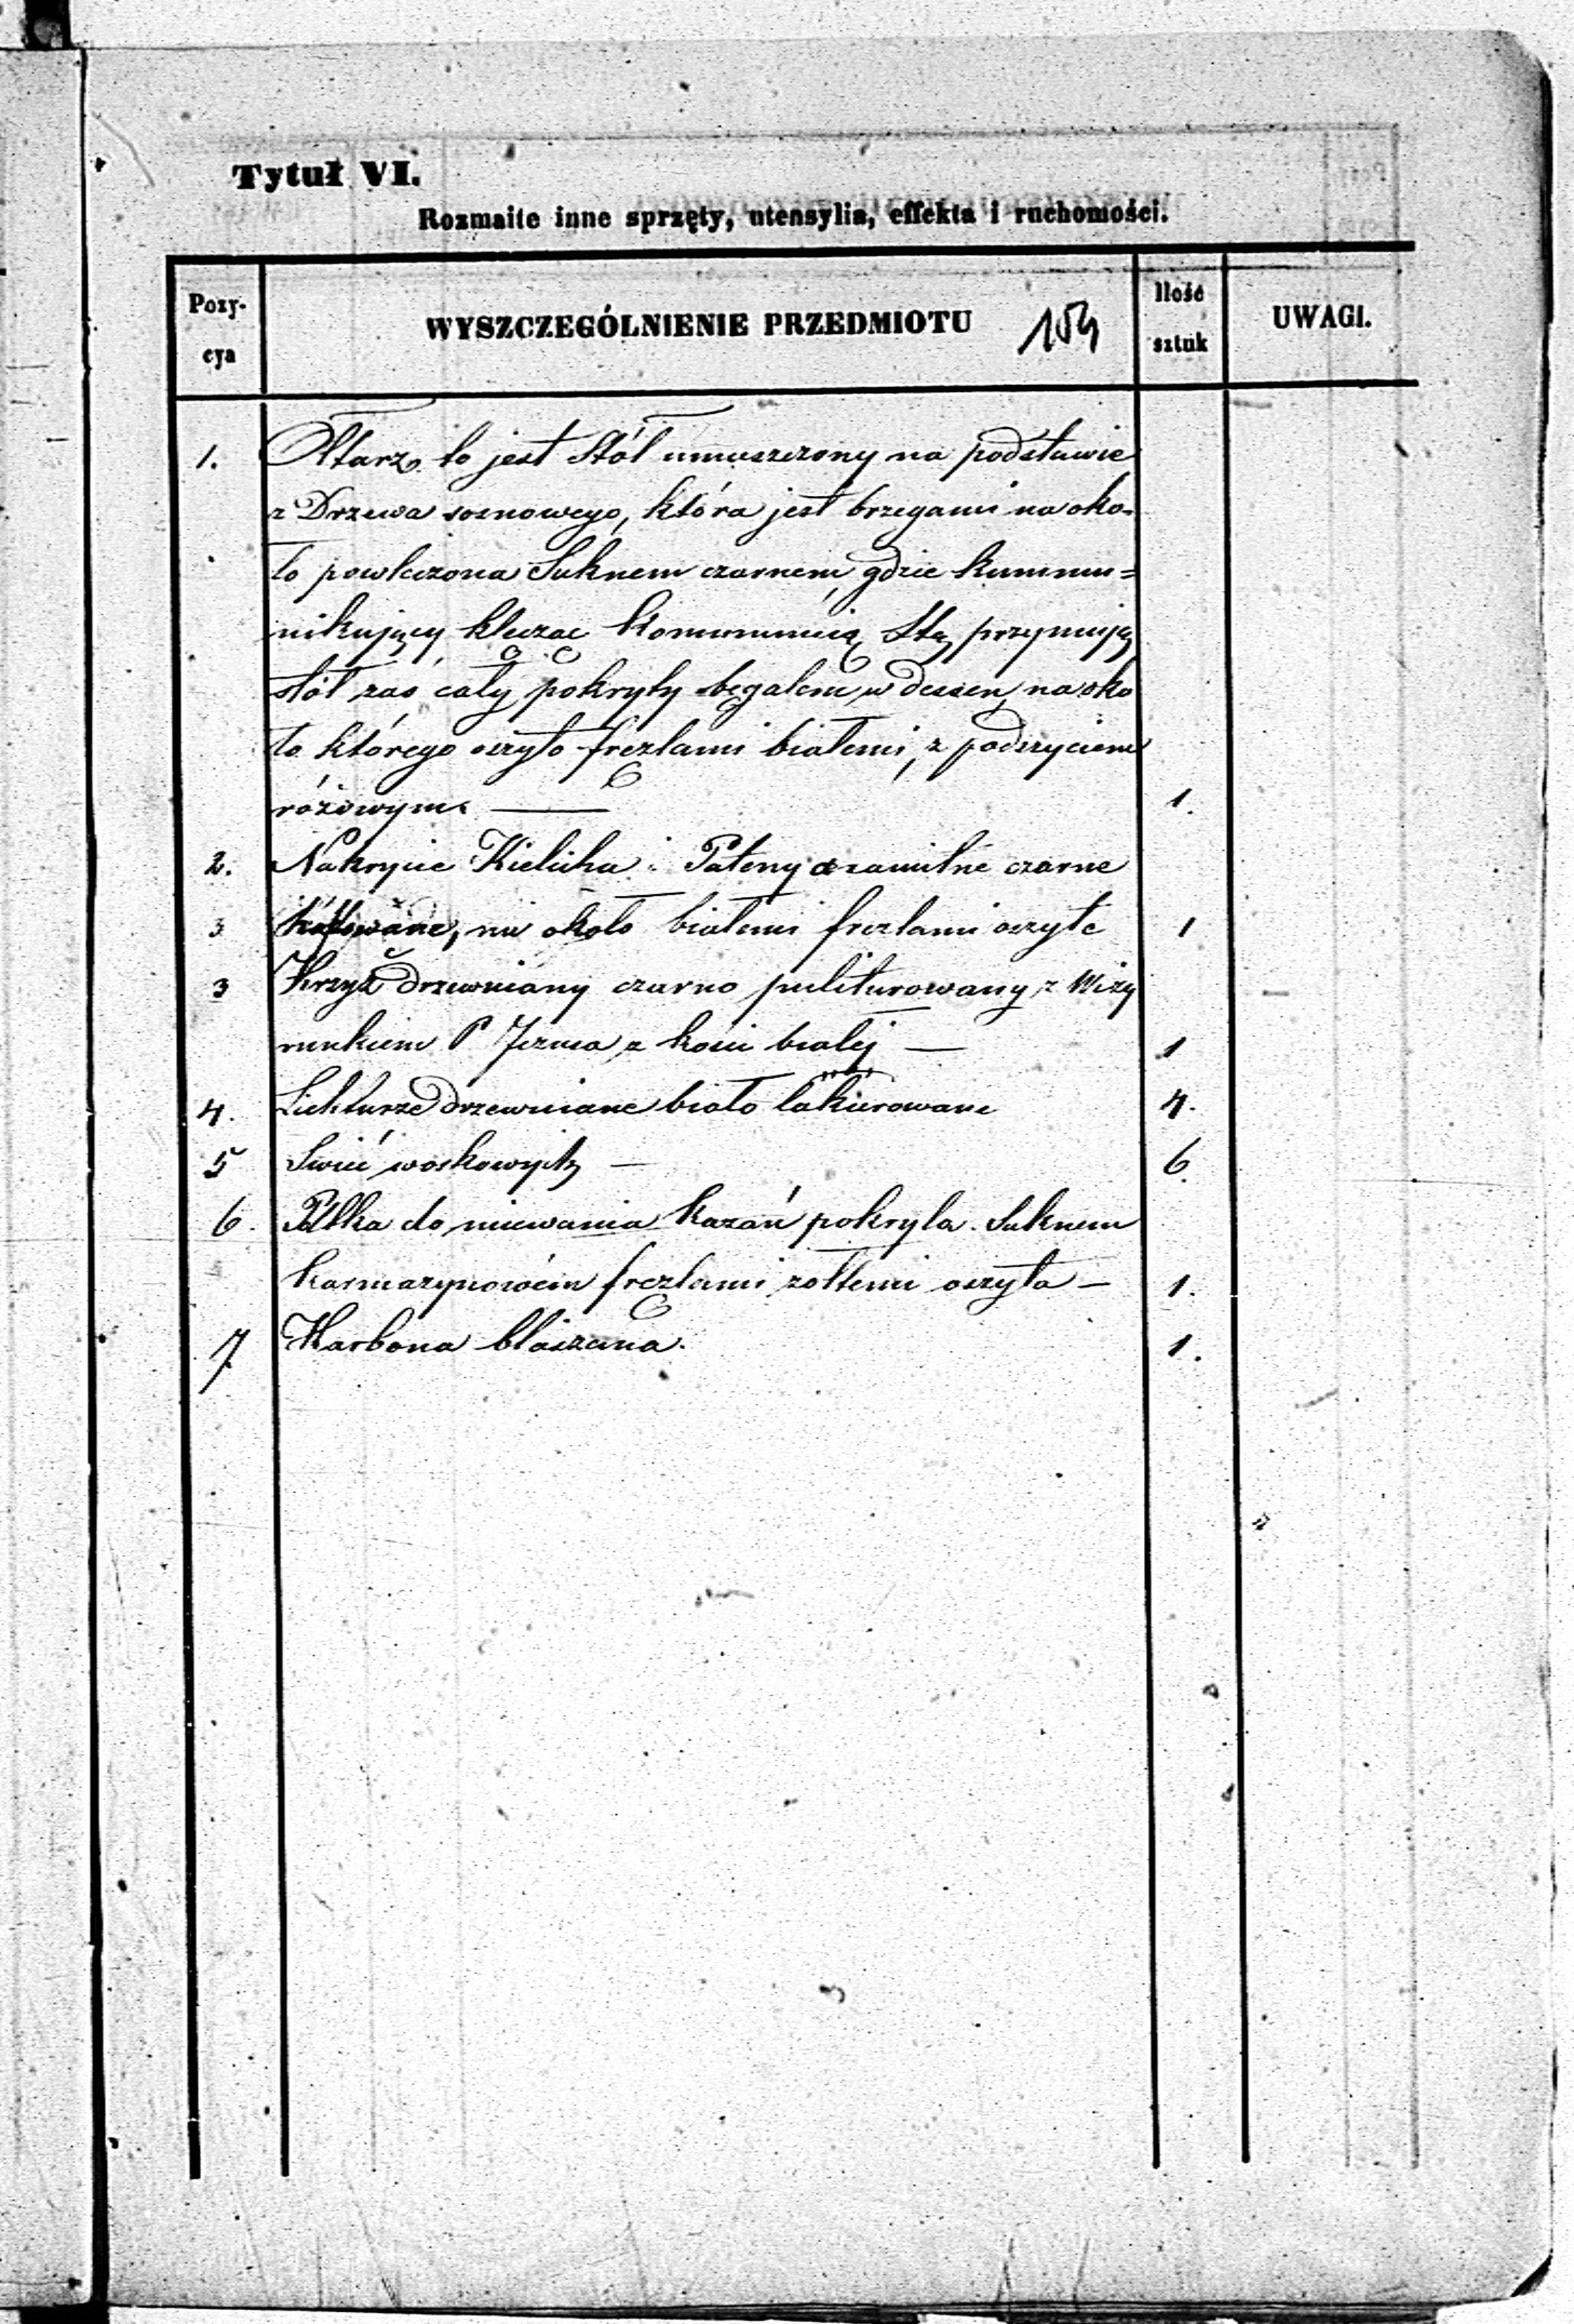 Tytuł VI.
Rozmaite inne sprzęty, utensylia, effekta i ruchomości.
Pozy-
cya
WYSZCZEGÓLNIENIE PRZEDMIOTU 154
Ilość
sztuk
UWAGI.
1. Ołtarz to jest Stół umieszczony na podstawie
z Drzewa sosnowego, która jest brzegami na oko-
ło powleczona Suknem czarnem, gdzie kummu=
nikujący klęcząc Kommunię Stą przyjmują
stół zaś cały pokryty w dessen, na oko
ło którego oszyto frezlami białemi, z podszyciem
różowym — 1.
2. Nakrycie Kielicha i Pateny axamitne czarne
3 haftowane, na około białemi frezlami oszyte 1
3 Krzyż drzewniany czarno puliturowany z Wizy
runkiem P Jezusa z kości białej — 1
4. Lichtarze drzewniane biało lakierowane 4.
5 Swiéc woskowych — 6
6. Pułka do miewania Kazań pokryta Suknem
karmazynowém frezlami żołtemi oszyta — 1.
7 Karbona blaszana. 1.